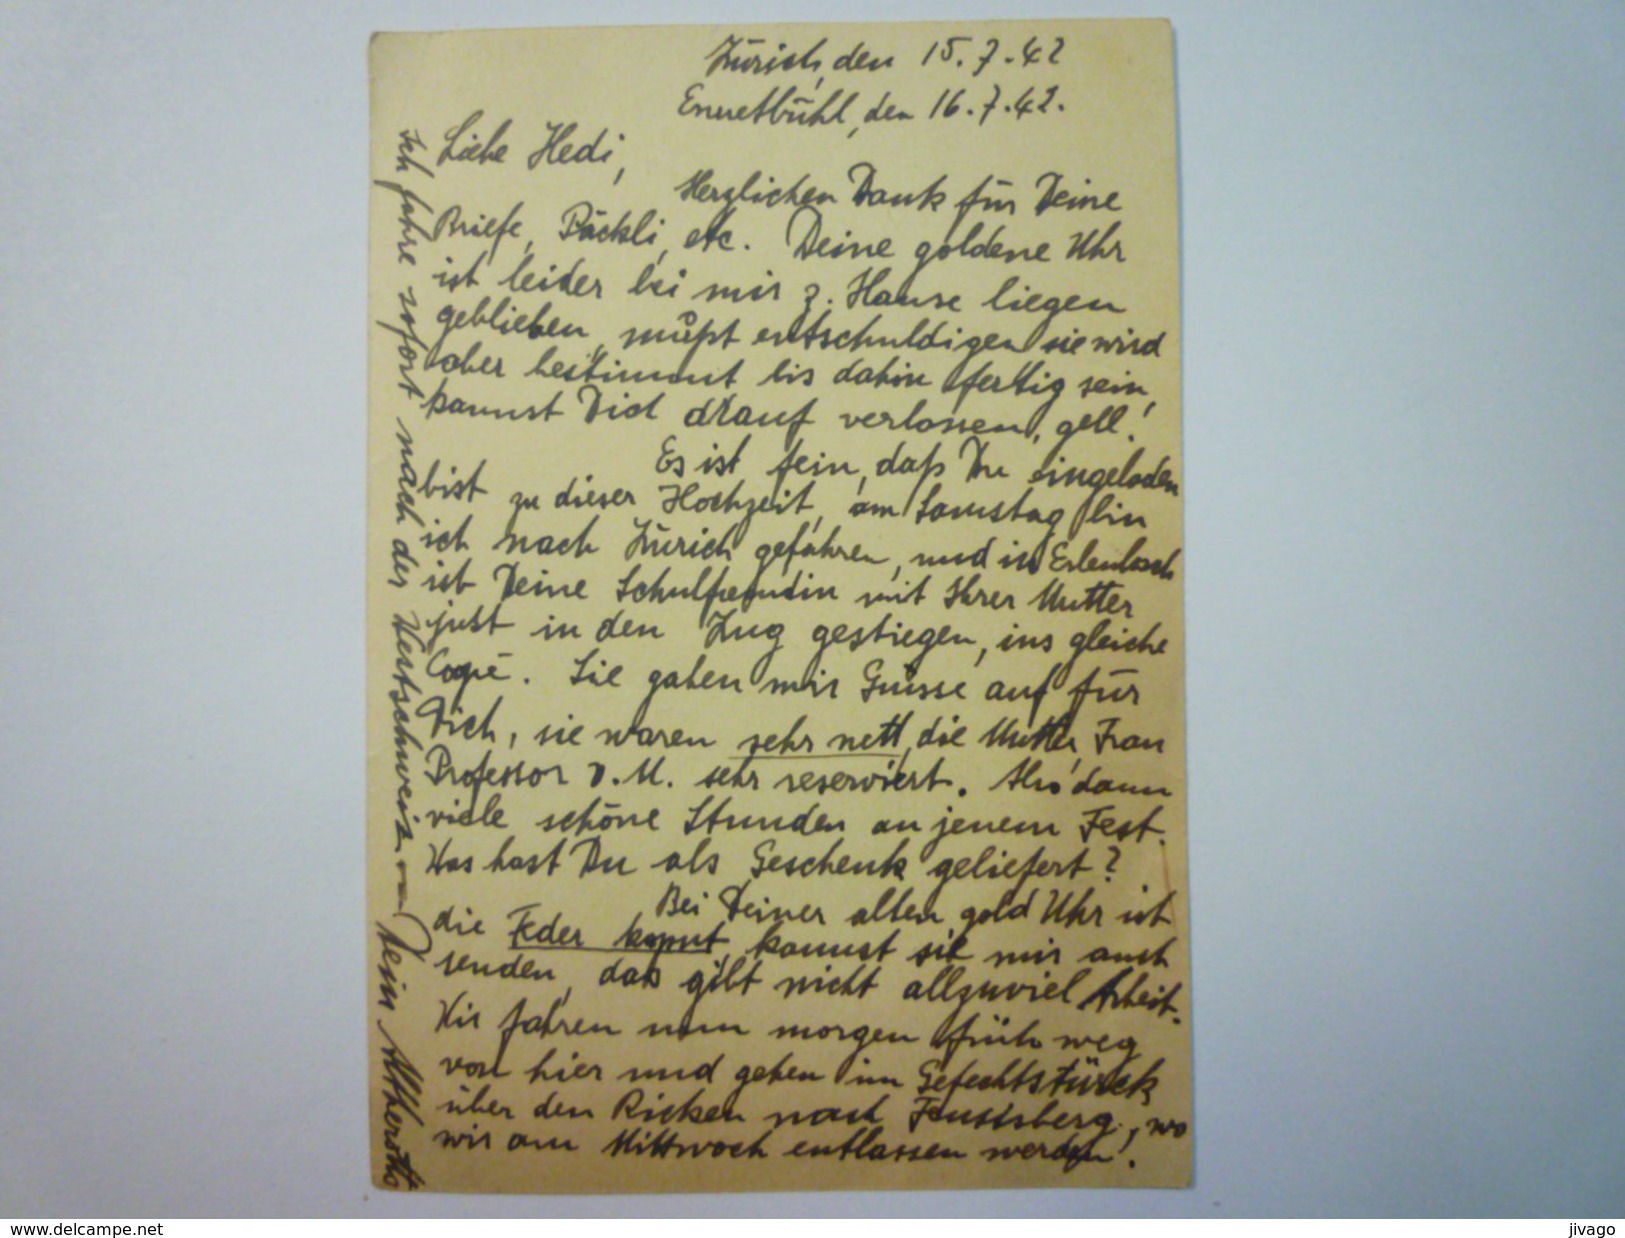 Zürich, den 15.7.42
Ennetbühl, den 16.7.42.
Liebe Hedi,
Herzlichen Dank für Deine
Briefe, Päckli, etc. Deine goldene Uhr
ist leider bei mir z. Hause liegen
geblieben, mußt entschuldigen sie wird
aber bestimmt bis dahin fertig sein,
kannst Dich drauf verlassen, gell!
Es ist fein, daß Du eingeladen
bist zu dieser Hochzeit, am Samstag bin
ich nach Zürich gefahren, und in Erlenbach
ist Deine Schulfreundin mit Ihrer Mutter
just in den Zug gestiegen, ins gleiche
Copé. Sie gaben mir Grüsse auf für
Dich, sie waren sehr nett, die Mutter, Frau
Professor v. M. sehr reserviert. Also dann
viele schöne Stunden an jenem Fest.
Was hast Du als Geschenk geliefert?
Bei Deiner alten gold Uhr ist
die Feder kaput, kannst sie mir auch
senden, das gibt nicht allzuviel Arbeit.
Wir fahren nun morgen früh weg
von hier und gehen im Gefechtstürck
über den Ricken nach Feusisberg, wo
wir am Mittwoch entlassen werden!
Ich fahre sofort nach der Westschweiz Dein
delcampe.net
jivago